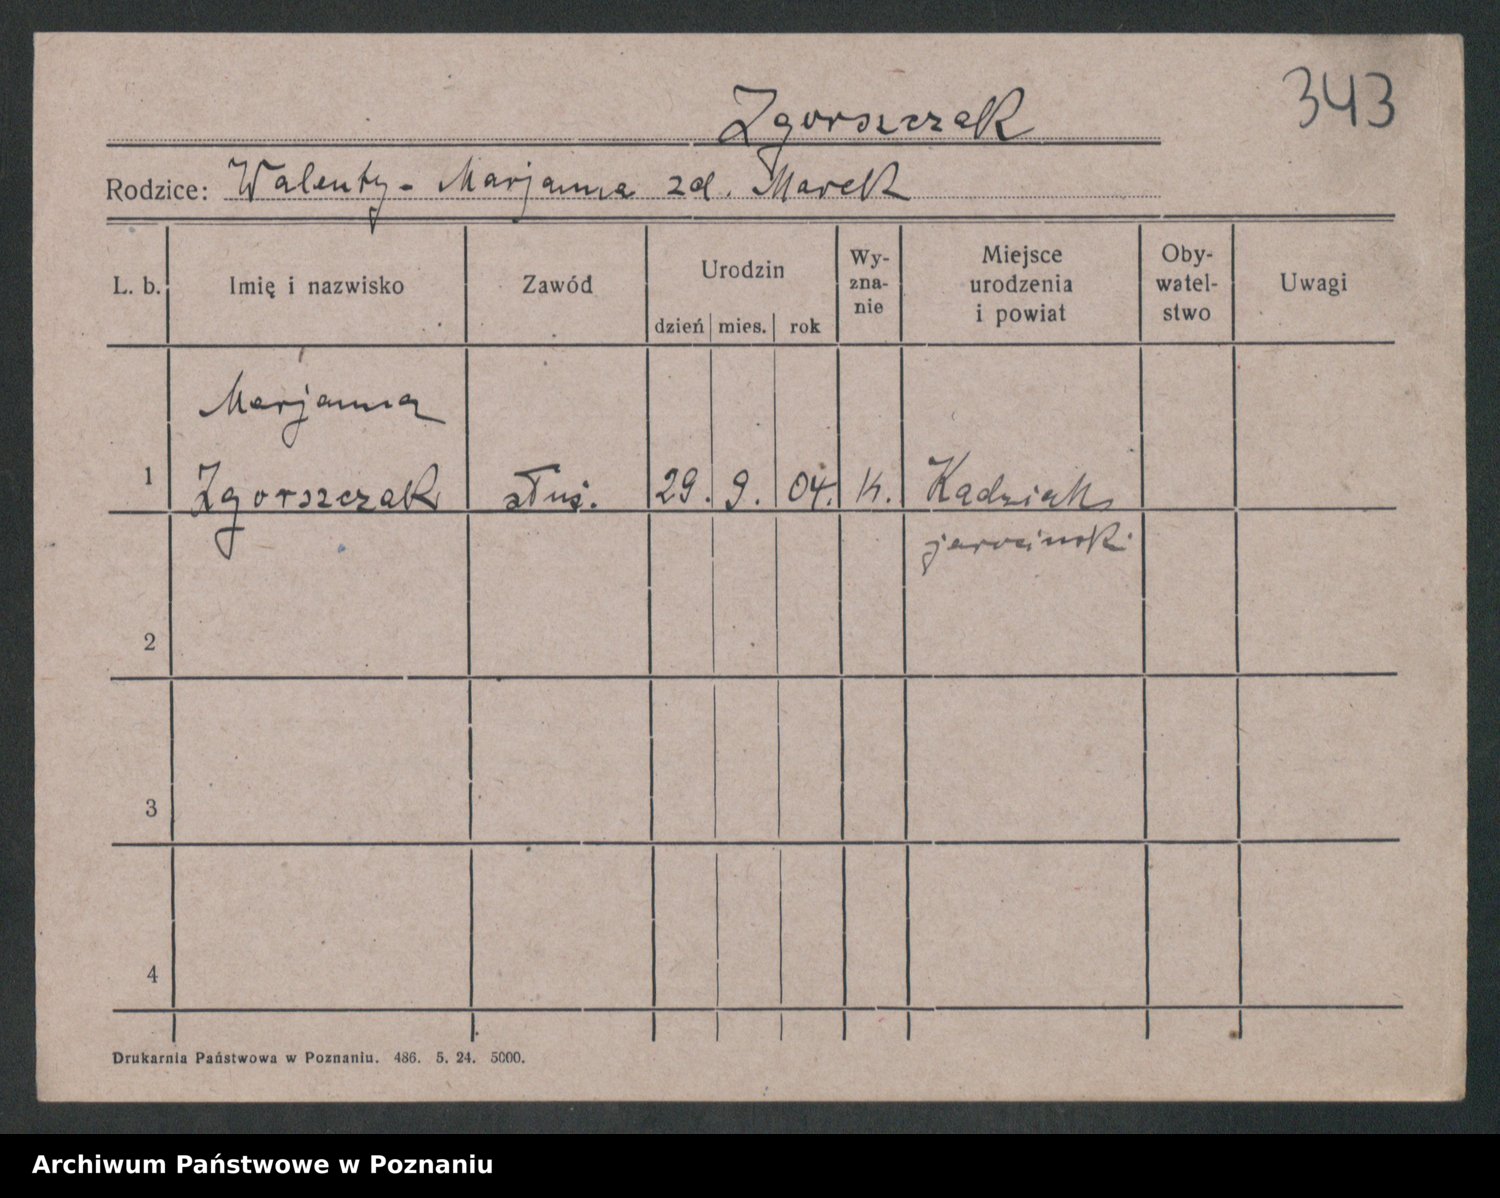 343
Zgorszczak
Rodzice: Walenty - Marjanna zd. Marek
L. b. Imię i nazwisko Zawód Urodzin dzień mies. rok Wy-zna-nie Miejsce urodzenia i powiat Oby-watel-stwo Uwagi
Marjanna
1 Zgorszczak służ. 29. 9. 04. K. Kadziak
jarociński
2
3
4
Drukarnia Państwowa w Poznaniu. 486. 5. 24. 5000.
Archiwum Państwowe w Poznaniu